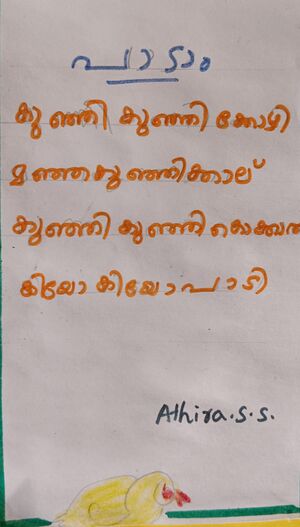 പാടാം
കുഞ്ഞി കുഞ്ഞി കോഴി
മഞ്ഞകുഞ്ഞിക്കാല്
കുഞ്ഞി കുഞ്ഞി
കിയോ കിയോ പാടി
Athira.s.s.